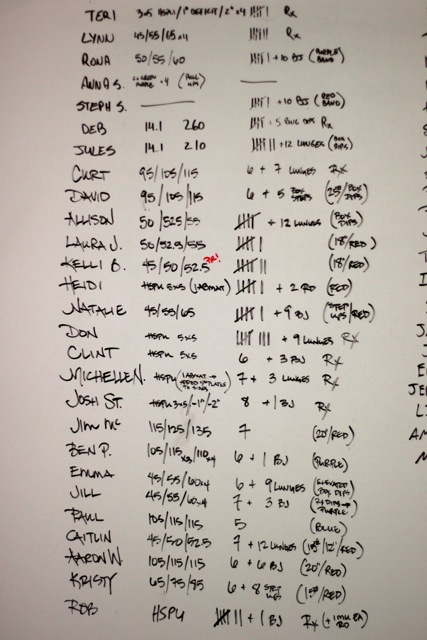 TERI 3x5 HSPU/1" DEFICIT/2" x4 Rx
LYNN 45/55/65 x4 Rx
RONA 50/55/60 + 10 BJ (PURPLE BAND)
ANNA S. x4
STEPH S. + 10 BJ (RED BAND)
DEB 14.1 260 + 5 RING DIPS Rx
JULES 14.1 210 + 12 LUNGES (BOX DIPS)
CURT 95/105/115 6 + 7 LUNGES Rx
DAVID 95/105/115 6 + 5 BOX STEPS (25#/BOX DIPS)
ALLISON 50/52.5/55 + 12 LUNGES (BOX DIPS)
LAURA J. 50/52.5/55 (18"/RED)
KELLI B. 45/50/52.5 PR! (18"/RED)
HEIDI HSPU 5x5 (1 ABMAT) + 2 RD (RED)
NATALIE 45/55/65 + 9 BJ (STEP UPS/RED)
DON HSPU 5x5 + 9 LUNGES Rx
CLINT HSPU 5x5 6 + 3 BJ Rx
MICHELLE N. HSPU (1 ABMAT 7 + 3 LUNGES Rx
JOSH ST. HSPU 3x5/-1"/-2" 8 + 1 BJ Rx
JIM MC 115/125/135 7 (20"/RED)
BEN P. 105/115 x3/110 x4 6 + 1 BJ (PURPLE)
EMMA 45/55/60 x4 6 + 9 LUNGES (ELEVATED BOX DIPS)
JILL 45/55/60 x4 7 + 3 BJ PURPLE)
PAUL 105/115/115 5 (BLUE)
CAITLIN 45/50/52.5 7 + 12 LUNGES (15#/12"/RED)
AARON W 105/115/115 6 + 6 BJ (20"/RED)
KRISTY 65/75/85 6 + 8 STEP UPS (15#/RED)
ROB HSPU + 1 BJ Rx